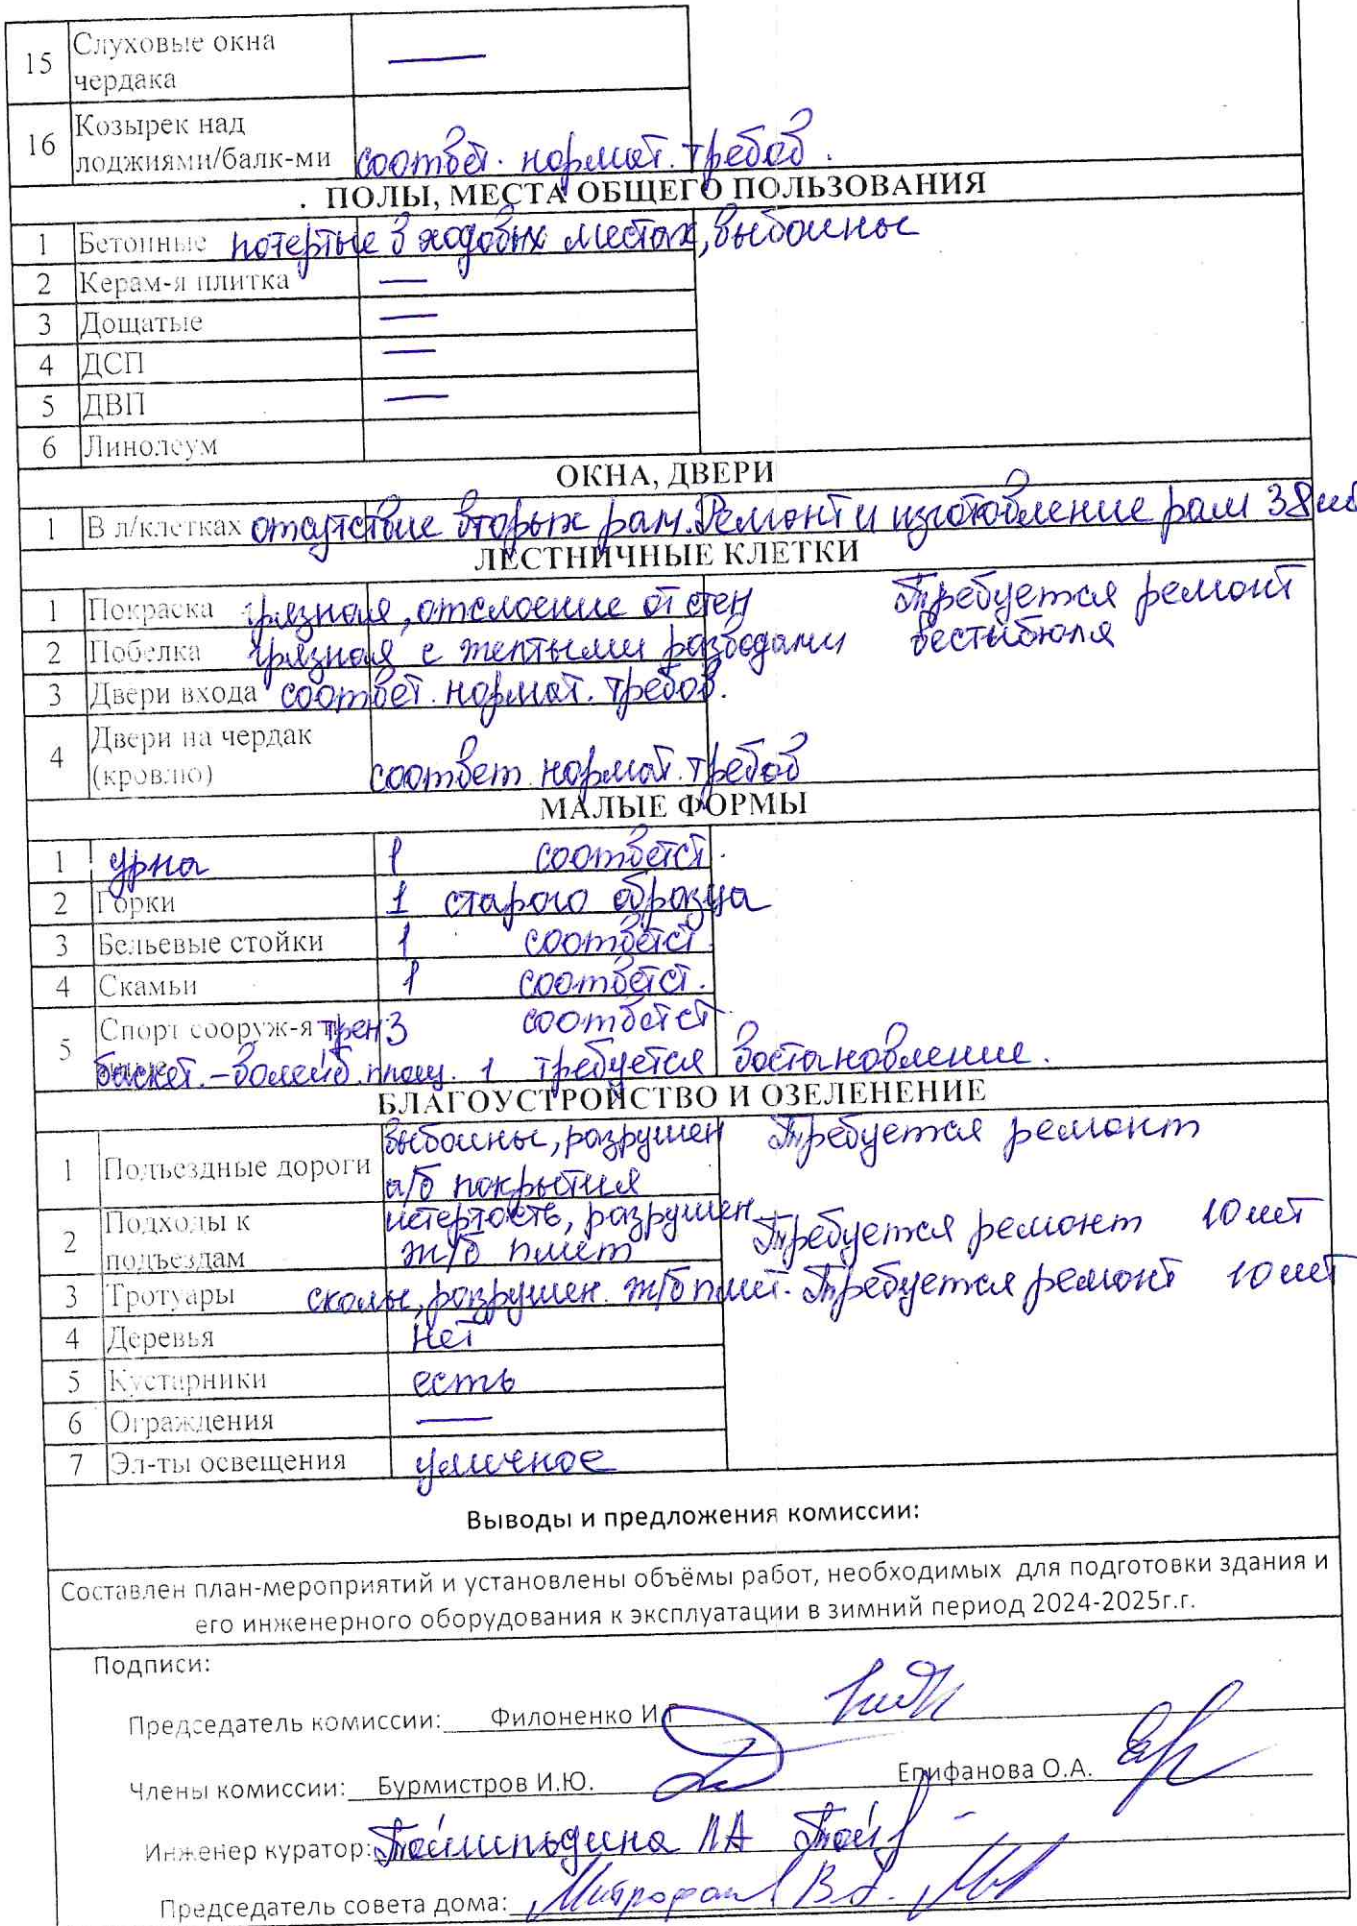 15 Слуховые окна —
чердака
16 Козырек над
лоджиями/балк-ми соответ. нормат. требов.
. ПОЛЫ, МЕСТА ОБЩЕГО ПОЛЬЗОВАНИЯ
1 Бетонные потертые в ходовых местах, выбоины
2 Керам-я плитка —
3 Дощатые —
4 ДСП —
5 ДВП —
6 Линолеум
ОКНА, ДВЕРИ
1 В л/клетках отсутствие вторых рам. Ремонт и изготовление рам 38
ЛЕСТНИЧНЫЕ КЛЕТКИ
1 Покраска грязная, отслоение от стен Требуется ремонт
2 Побелка грязная с желтыми разводами вестибюля
3 Двери входа соответ. нормат. требов.
4 Двери на чердак
(кровлю) соответ. нормат. требов
МАЛЫЕ ФОРМЫ
1 урна 1 соответст.
2 Горки 1 старого образца
3 Бельевые стойки 1 соответст.
4 Скамьи 1 соответст.
5 Спорт сооруж-я трен 3 соответст
баскет.-волейб. площ. 1 требуется востановление.
БЛАГОУСТРОЙСТВО И ОЗЕЛЕНЕНИЕ
1 Подъездные дороги выбоины, разрушен Требуется ремонт
а/б покрытия
2 Подходы к истертость, разрушен Требуется ремонт 10 шт
подъездам ж/б плит
3 Тротуары сколы, разрушен. ж/б плит. Требуется ремонт 10 шт
4 Деревья нет
5 Кустарники есть
6 Ограждения —
7 Эл-ты освещения уличное
Выводы и предложения комиссии:
Составлен план-мероприятий и установлены объёмы работ, необходимых для подготовки здания и
его инженерного оборудования к эксплуатации в зимний период 2024-2025г.г.
Подписи:
Председатель комиссии: Филоненко И.
Члены комиссии: Бурмистров И.Ю. Епифанова О.А.
Инженер куратор: ЛА
Председатель совета дома: